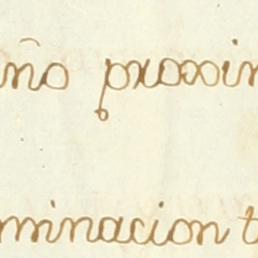 año proxim
minacion t